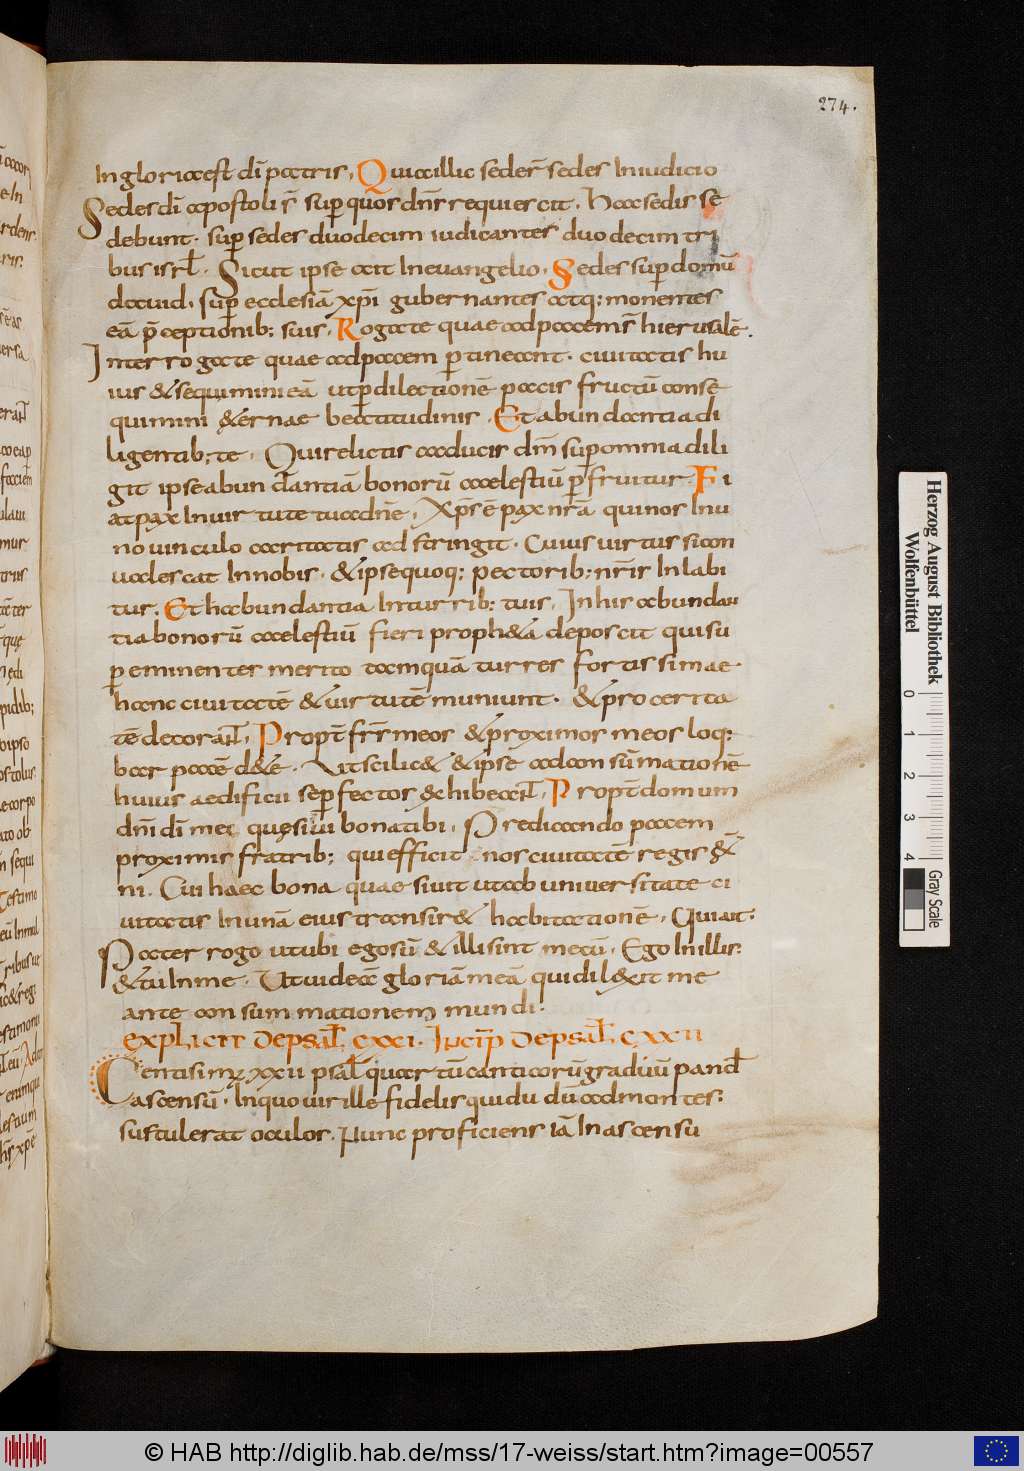 274.
In gloria est dī patris, Quia illic sedert̄ sedes In iudicio
Sedes dī apostoli s̄ sup quos dn̄s requiescit, Haec sedis se
debunt. sup sedes duodecim iudicantes duodecim tri
bus isrl̄. Sicut ipse ait In euangelio, Sedes sup domū
dauid, sup ecclesiā xp̄i gubernantes atq; monentes
eā p̄ceptionib; suis, Rogate quae ad pacem s̄ hierusalē.
Interrogate quae ad pacem ptineant. ciuitatis hu
ius & sequimini eā ut p dilectionē pacis fructū conse
quimini &ernae beatitudinis. Et abundantia di
ligentib; te, Qui relictis caducis dm̄ sup omnia dili
git ipse abundantiā bonorū caelestiū pfruitur. Fi
at pax In uirtute tua dn̄e, Xp̄s ē pax nr̄a qui nos Inu
no uinculo caritatis adstringit. Cuius uirtus si con
ualescat In nobis, & ipse quoq; pectorib; nr̄is Inlabi
tur, Et habundantia In turrib; tuis, In his abundan
tia bonorū caelestiū fieri proph&a deposcit qui su
peminenter merito tamquā turres fortissimae.
hanc ciuitatē & uirtutē muniunt. & procerita
tē decorant, Propt̄ fr̄s meos & proximos meos loq;
bar pacē d&e. Ut scilic& & ipse ad consūmationē
huius aedificii se pfectos exhibeant, Propt̄ domum
dn̄i dī mei quesiui bona tibi, Predicando pacem
proximis fratrib; qui efficit nos ciuitatē regis &̄
ni. Cui haec bona quae siuit ut ab uniuersitate ci
uitatis In unā eius transir& habitationē, Qui ait:
Pater rogo ut ubi ego sū & illi sint mecū, Ego In illis:
& tu In me. Ut uideant gloriā meā qui dil&it me
ante consummationem mundi.
explicit de psal̄ cxxi. Incip̄ de psal̄ cxxii
Centisimus xxii psal̄ quartū canticorū graduū pand̄
ascensū. In quo uir ille fidelis qui dudū ad montes:
sustulerat oculos. Nunc proficiens iā In ascensu
Herzog August Bibliothek
Wolfenbüttel
0 1 2 3 4
Gray Scale
© HAB http://diglib.hab.de/mss/17-weiss/start.htm?image=00557